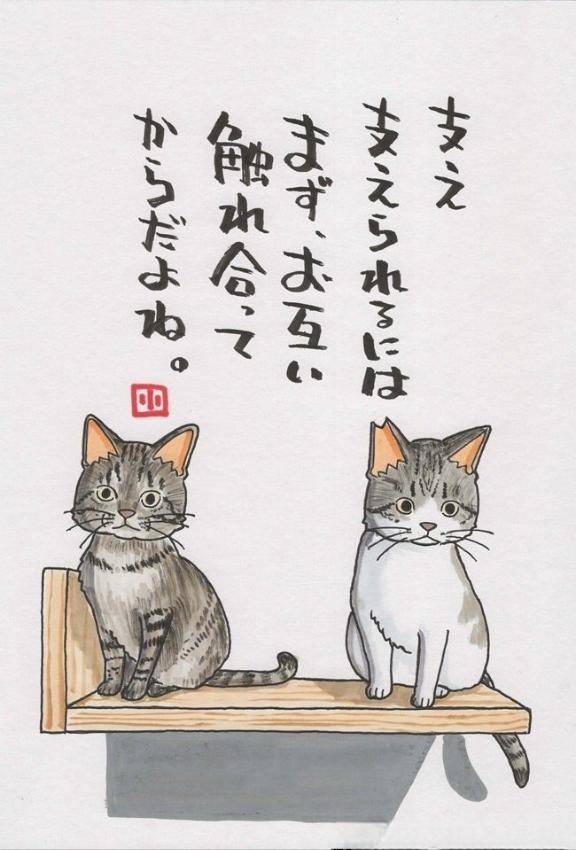 支え
支えられるには
まず、お互い
触れ合って
からだよね。
小